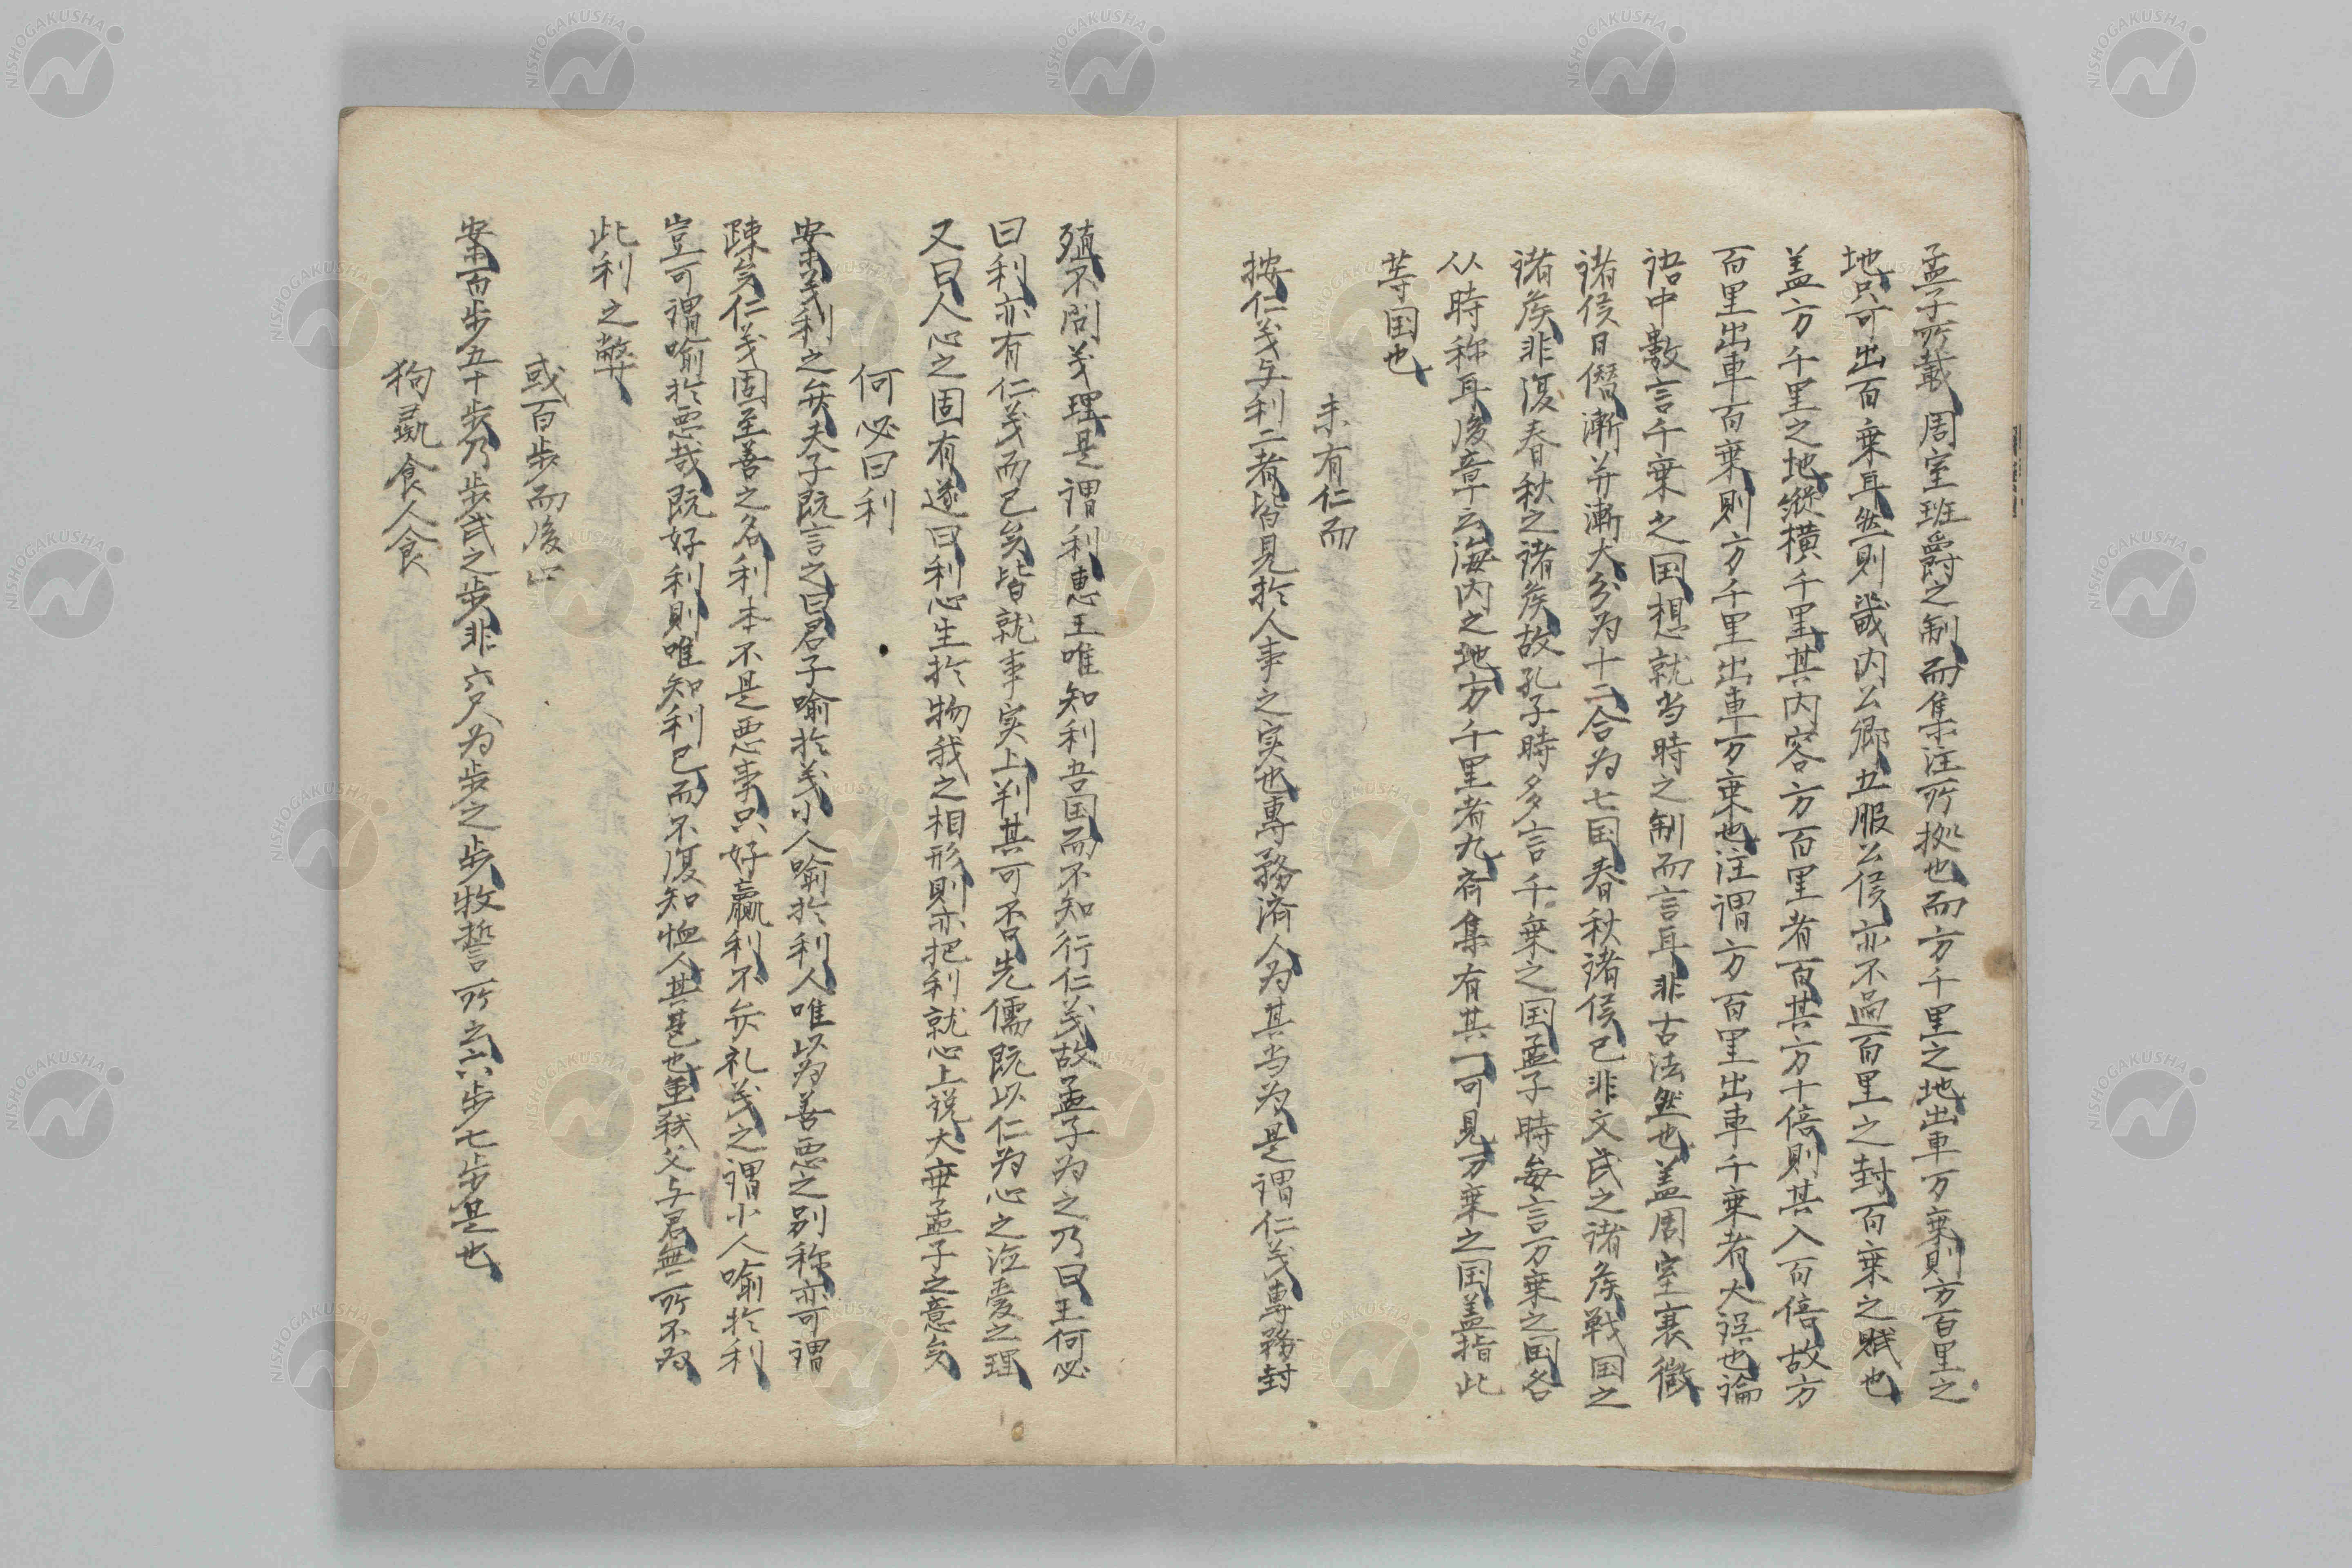 孟子所載周室班爵之制而集注所拠也而方千里之地出車万乗則方百里之
地只可出百乗耳然則畿内公卿五服公侯亦不過百里之封百乗之賦也
盖方千里之地縦横千里其内容方百里者百其方十倍則其入百倍故方
百里出車百乗則方千里出車万乗也注謂方百里出車千乗者大誤也論
語中数言千乗之国想就当時之制而言耳非古法然也盖周室衰微
諸侯日僭漸并漸大分为十二合为七国春秋諸侯已非文武之諸侯戦国之
諸侯非復春秋之諸侯故孔子時多言千乗之国孟子時毎言万乗之国各
从時称耳後章云海内之地方千里者九斉集有其一可見万乗之国盖指此
等国也
未有仁而
按仁义与利二者皆見於人事之実也専務済人为其当为是謂仁义専務封
殖不問义理是謂利恵王唯知利吾国而不知行仁义故孟子为之乃曰王何必
曰利亦有仁义而已矣皆就事実上判其可否先儒既以仁为心之徳愛之理
又曰人心之固有遂曰利心生於物我之相形則亦把利就心上説大乖孟子之意矣
何必曰利
案义利之弁夫子既言之曰君子喩於义小人喩於利人唯以为善悪之別称亦可謂
疎矣仁义固至善之名利本不是悪事只好贏利不弁礼义之謂小人喩於利
豈可謂喩於悪哉既好利則唯知利己而不復知恤人其甚也至弑父与君無所不为
此利之弊
或百歩而後止
案百歩五十歩乃歩武之歩非六尺为歩之歩牧誓所云六歩七歩是也
狗彘食人食
NISHOGAKUSHA